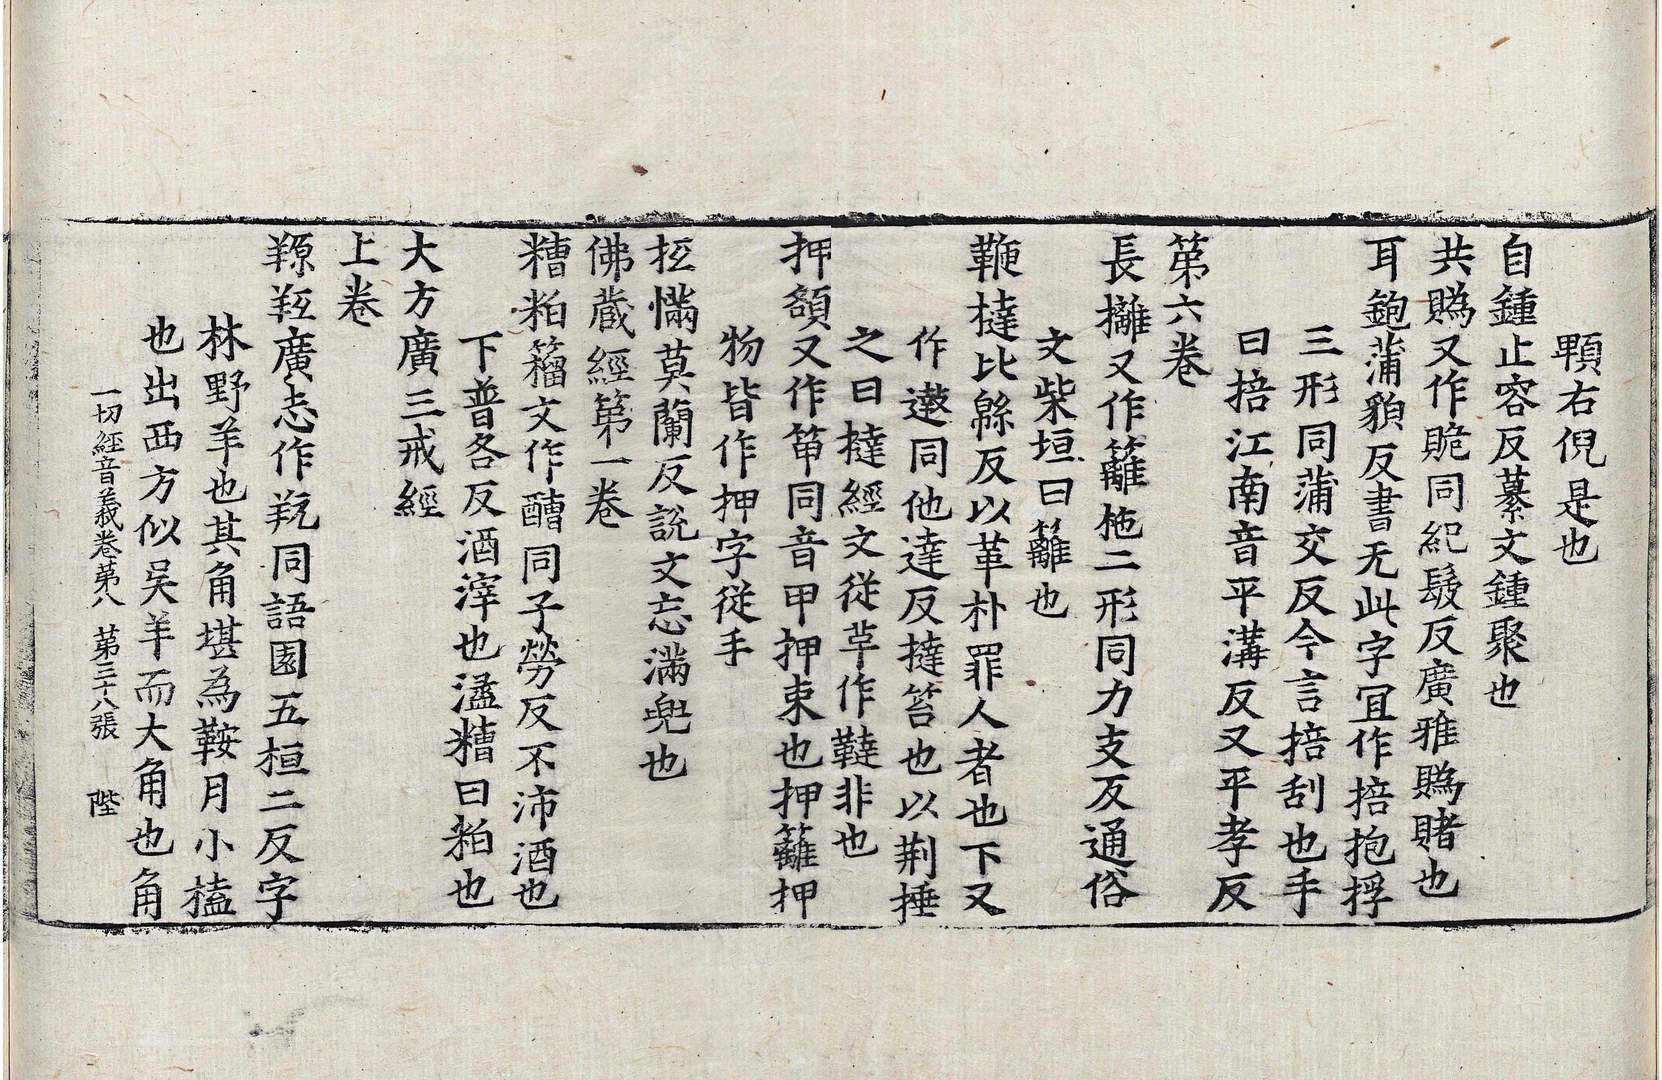 顆右倪是也
自鍾止容反䋣文鍾聚也
共賭又作賄同紀髲反廣雅賭賭也
耳鉋蒲䫉反書无此字宜作掊抱捊
三形同蒲交反今言掊刮也手
曰掊江南音平溝反又平孝反
第六卷
長攡又作籬杝二形同力支反通俗
文柴垣曰籬也
鞭撻比緜反以革朴罪人者也下又
作𨔶同他達反撻笞也以荆捶
之曰撻經文從草作韃非也
押頟又作𥬻同音甲押束也押籬押
物皆作押字從手
抂慲莫蘭反說文忘滿兜也
佛蔵經第一卷
糟粕籀文作醩同子勞反不沛酒也
下普各反酒滓也濜糟曰粕也
大方廣三戒經
上卷
羱羫廣志作羦同語園五桓二反字
林野羊也其角堪為鞍月小榼
也出西方似吳羊而大角也角
一切經音義卷第八 第三十八張 陛